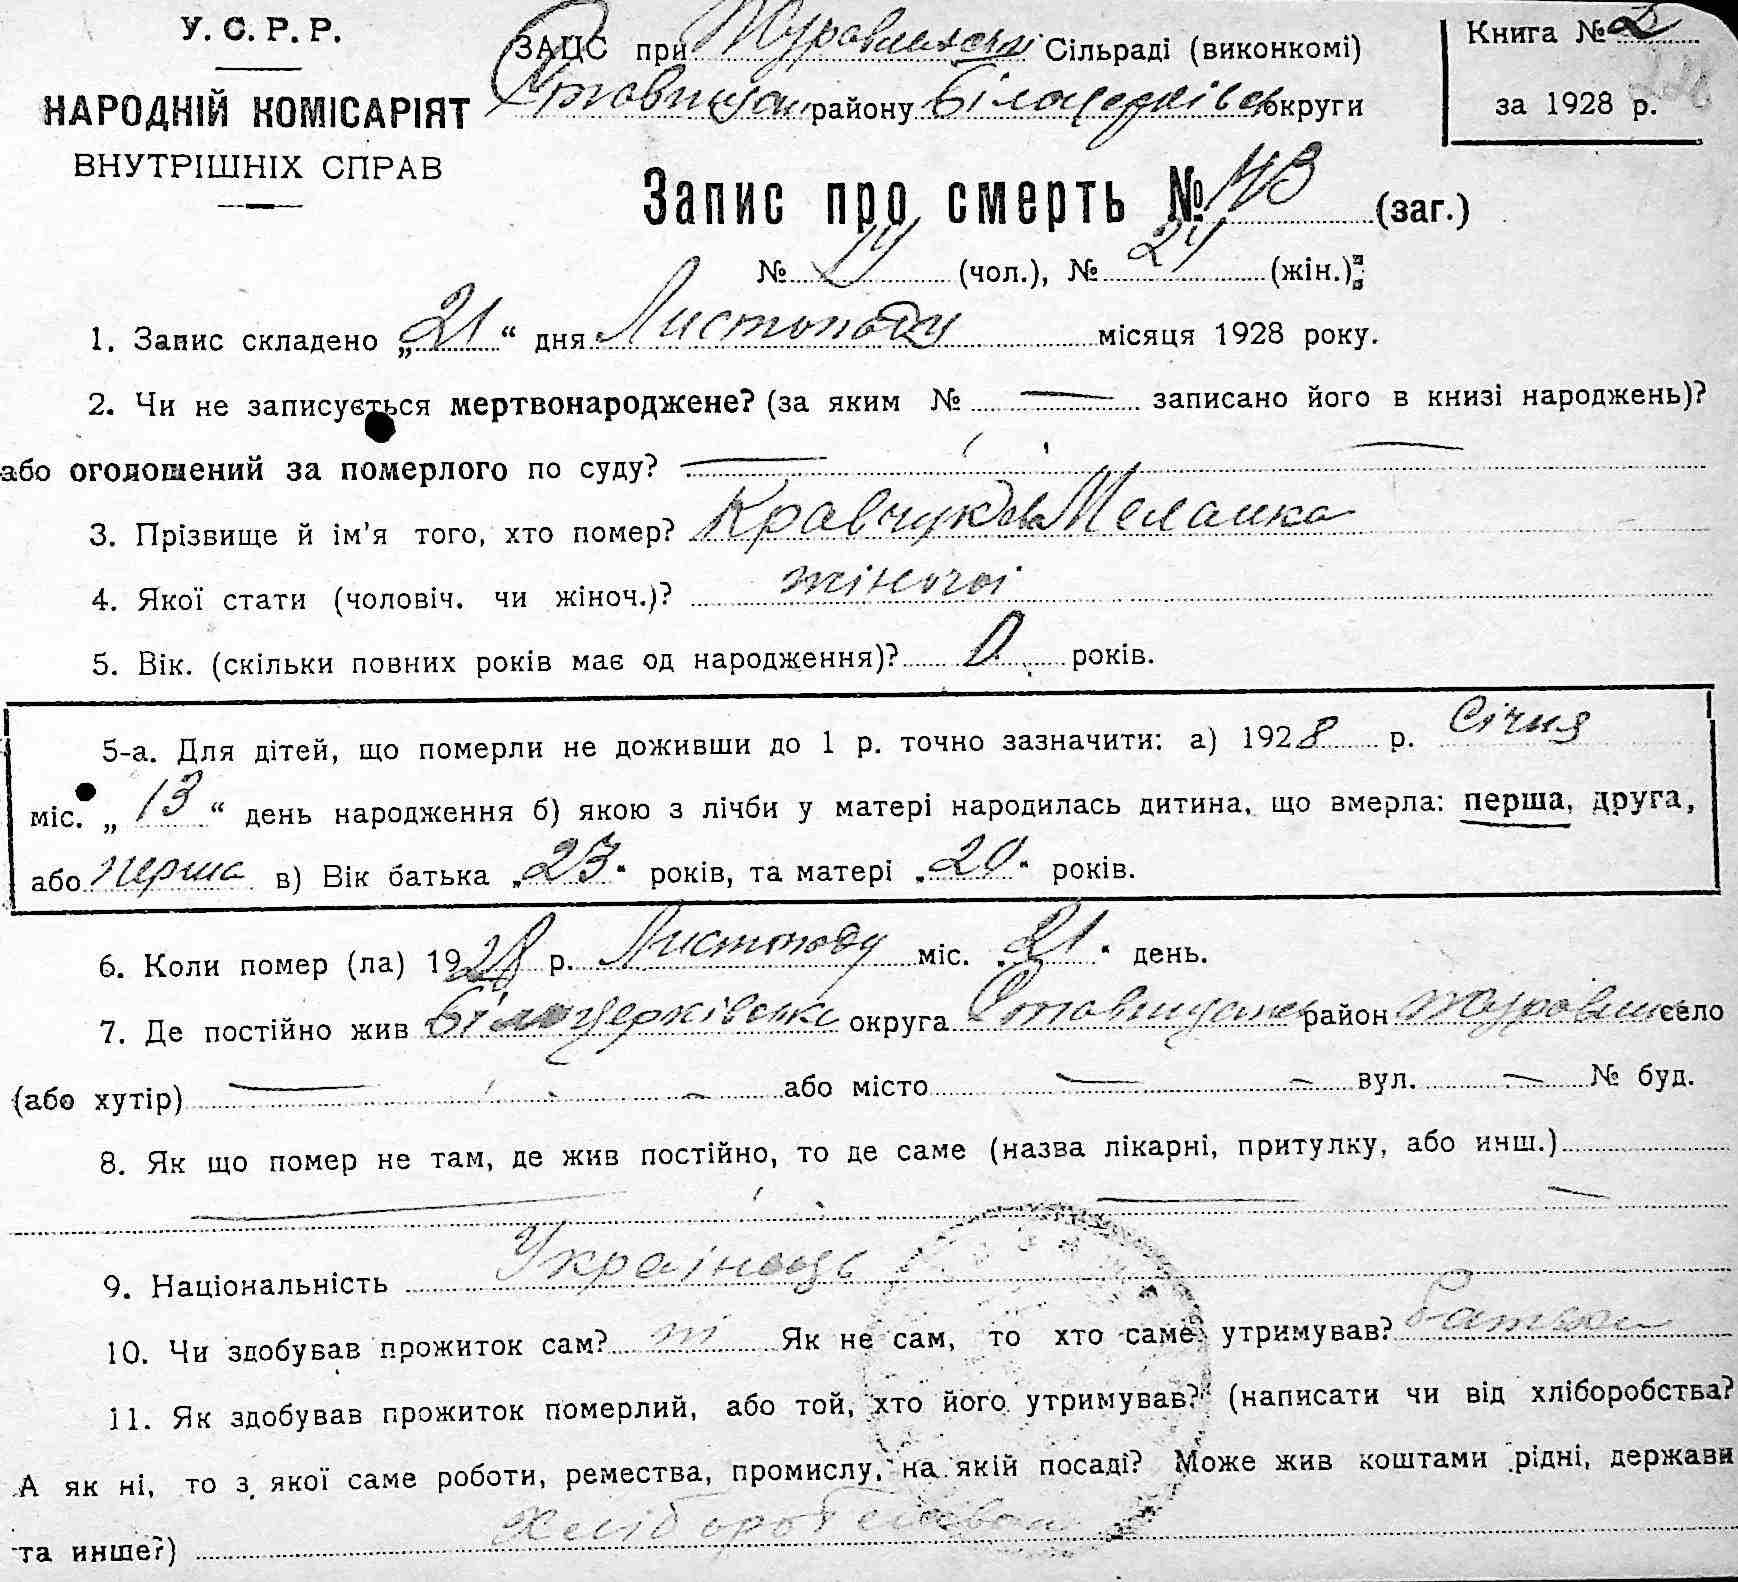 У. С. Р. Р.
НАРОДНІЙ КОМІСАРІЯТ
ВНУТРІШНІХ СПРАВ
ЗАЦС при Журавлиській Сільраді (виконкомі)
Ставищан району Білоцерківськ округи
Книга № 2
за 1928 р.
Запис про смерть № 43 (заг.)
№ 19 (чол.), № 24 (жін.)
1. Запис складено „21“ дня Листопаду місяця 1928 року.
2. Чи не записується мертвонароджене? (за яким № — записано його в книзі народжень)?
або оголошений за померлого по суду? —
3. Прізвище й ім'я того, хто помер? Кравчукова Меланка
4. Якої стати (чоловіч. чи жіноч.)? жіночої
5. Вік. (скільки повних років має од народження)? 0 років.
5-а. Для дітей, що померли не доживши до 1 р. точно зазначити: а) 1928 р. Січня
міс. „13“ день народження б) якою з лічби у матері народилась дитина, що вмерла: перша, друга,
або перша в) Вік батька „23“ років, та матері „20“ років.
6. Коли помер (ла) 1928 р. Листопаду міс. „21“ день.
7. Де постійно жив Білоцерківськ округа Ставищан район село
(або хутір) — або місто — вул. — № буд.
8. Як що помер не там, де жив постійно, то де саме (назва лікарні, притулку, або инш.)
—
9. Національність Українець
10. Чи здобував прожиток сам? ні Як не сам, то хто саме утримував? батько
11. Як здобував прожиток померлий, або той, хто його утримував? (написати чи від хліборобства?
А як ні, то з якої саме роботи, ремества, промислу, на якій посаді? Може жив коштами рідні, держави
та инше?)